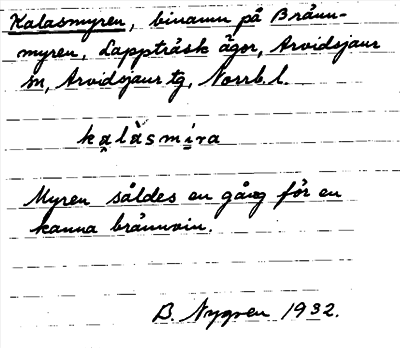 Kalasmyren, binamn på Bränn-
myren, Lappträsk ägor, Arvidsjaur
sn, Arvidsjaur tg, Norrb. l.
kạlàsmi̱ra
Myren såldes en gång för en
kanna brännvin.
B. Nygren 1932.